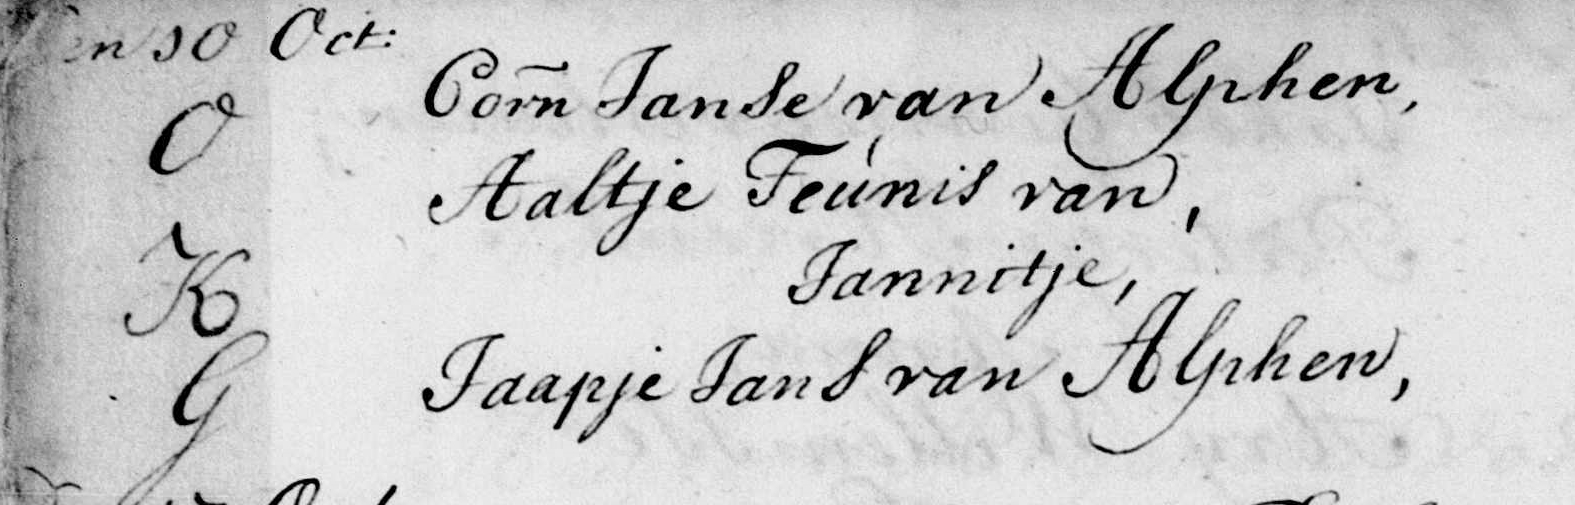 en 10 Oct:
Corn̄ Janse van Alphen,
O
Aaltje Teúnis van,
K Jannitje,
G Jaapje Jans van Alphen,
Oct